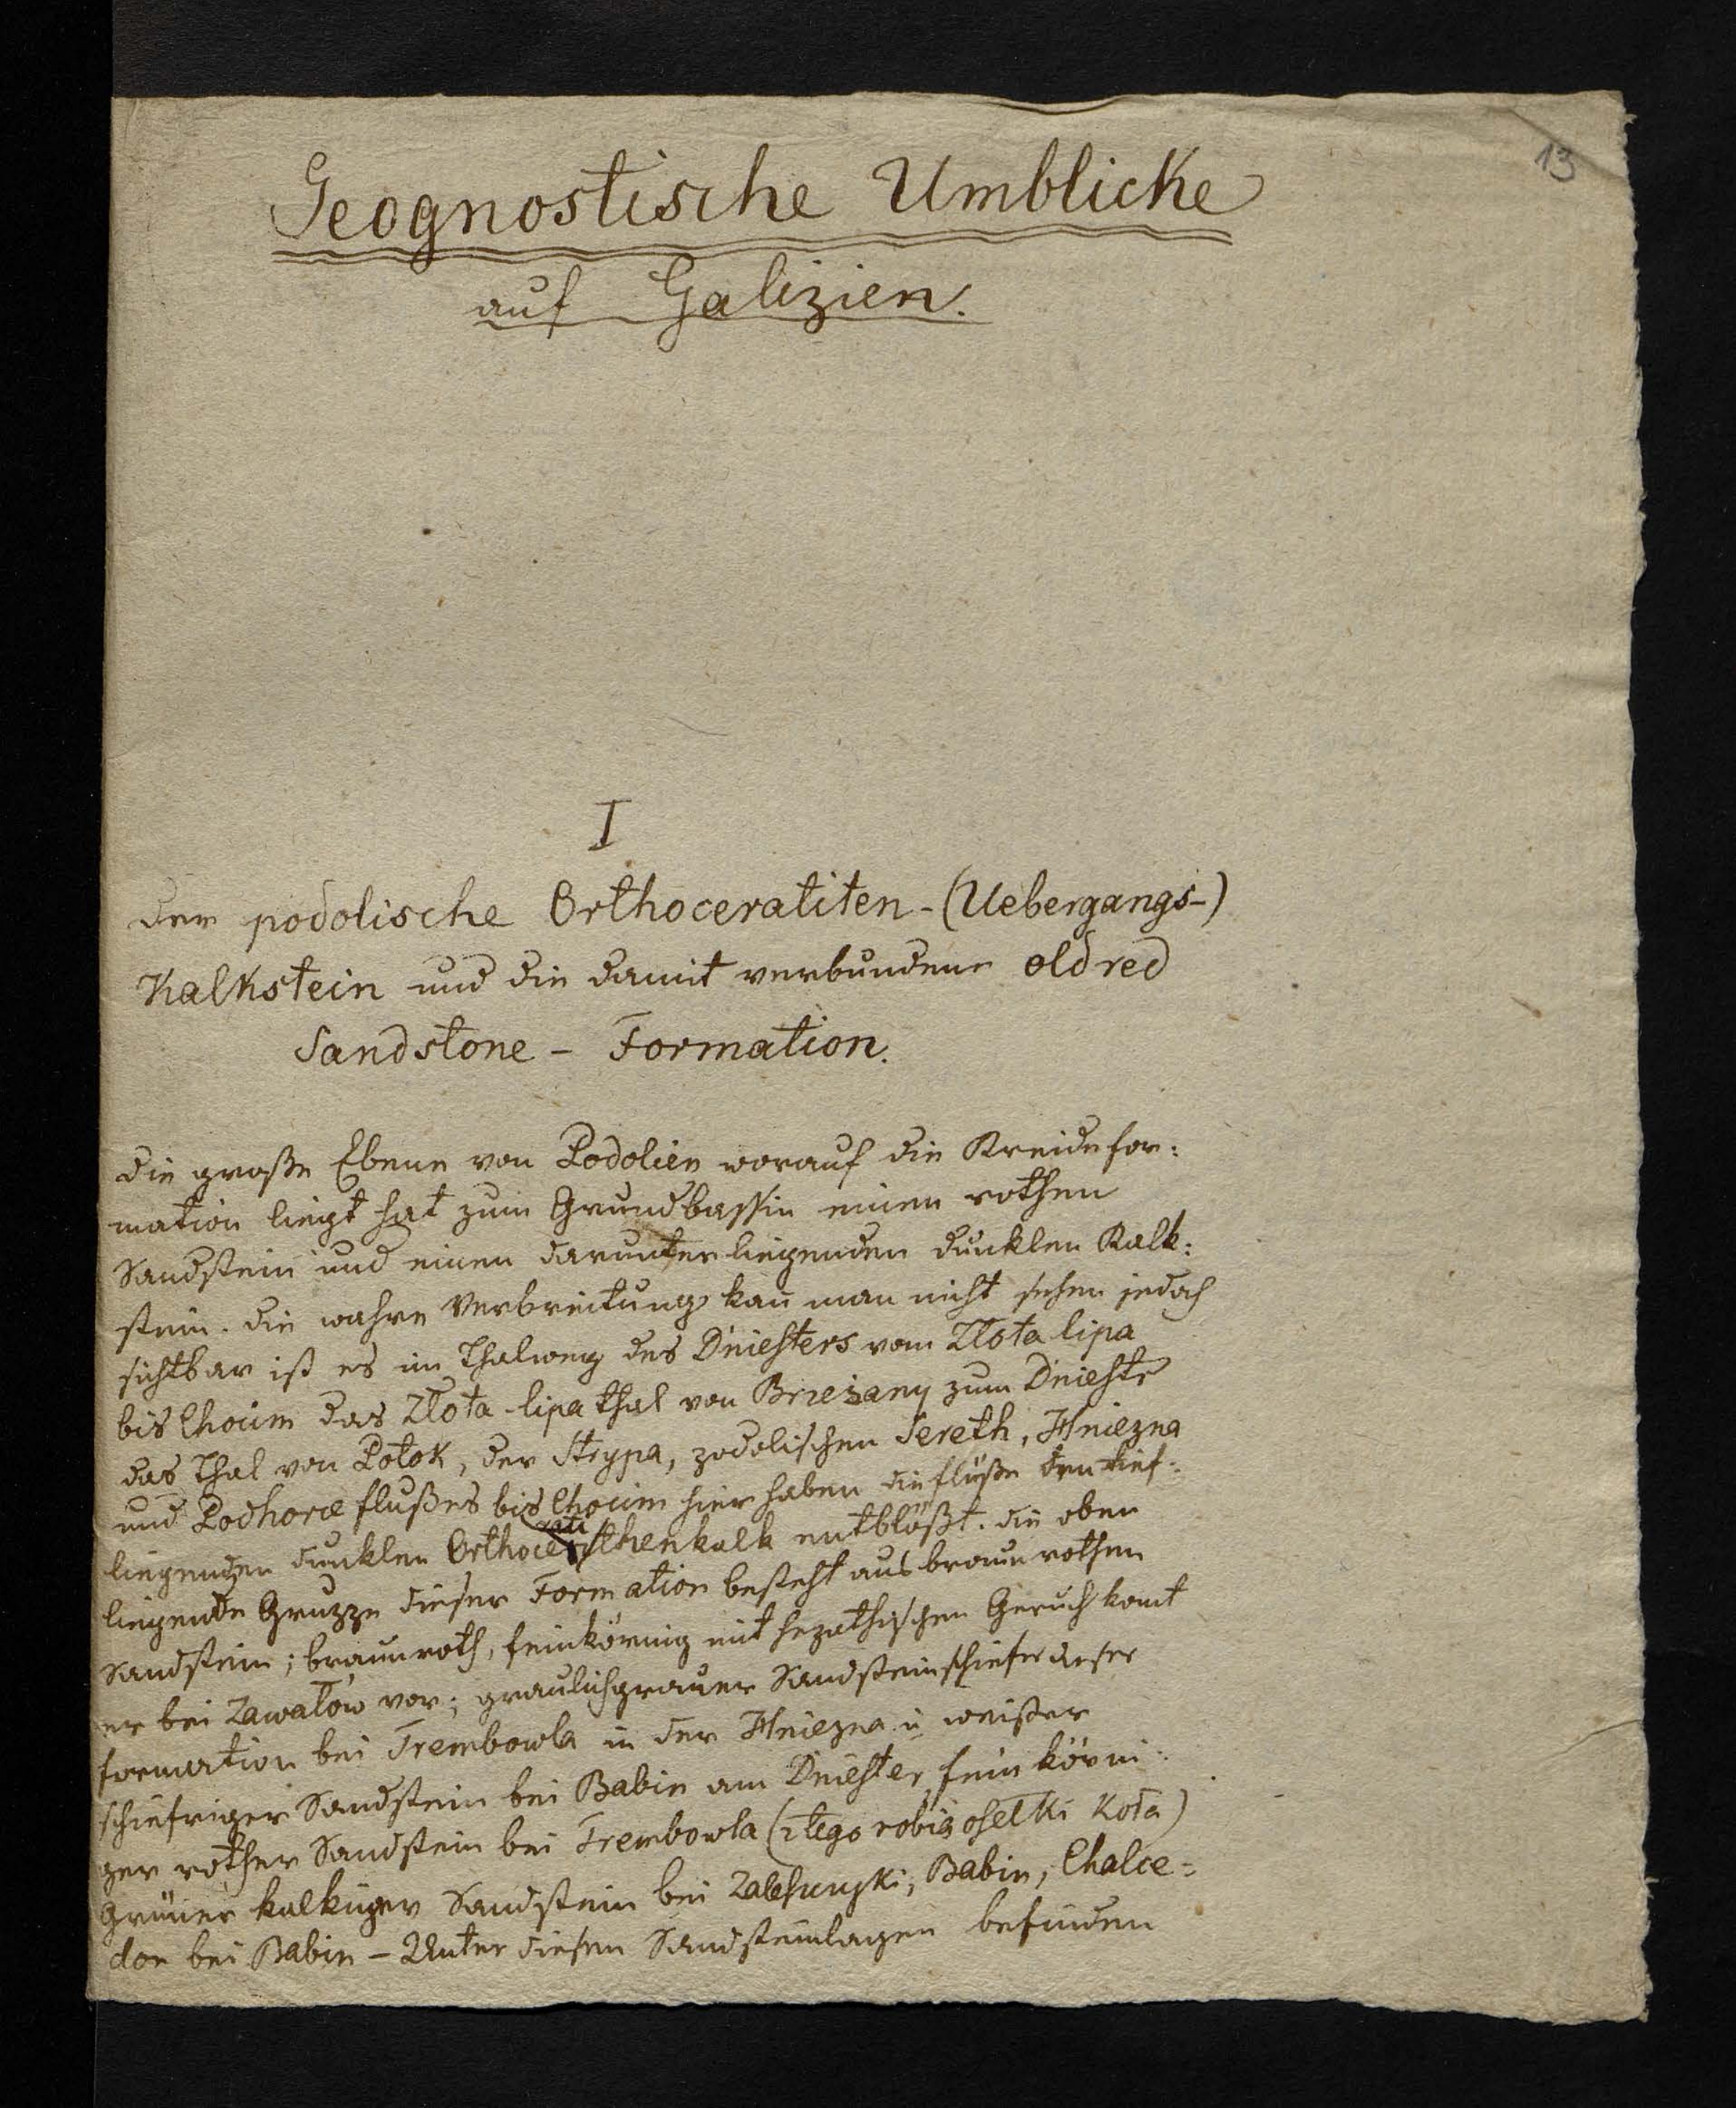 13
Geognostische Umblicke
auf Galizien.
I
Der podolische Orthoceratiten-(Uebergangs-)
Kalkstein und die damit verbundene old red
Sandstone - Formation.
Die große Ebene von Podolien worauf die Kreidefor:
mation liegt hat zum Grundbassin einen rothen
Sandstein und einen darunterliegenden dunklen Kalk:
stein. Die wahre Verbreitung kan̄ man nicht sehen jedoch
sichtbar ist es im Thalweg des Dniesters vom Złota lipa
bis Chocim das Złota-lipa thal von Brzeżany zum Dniestr
das Thal von Potok, der Strypa, podolischen Sereth, Hniezna
und Podhorce flußes bis Chocim hier haben die flüße den tief:
liegenden dunklen Orthoceratithenkalk entblößt. Die oben
liegende Gruppe dieser Formation besteht aus braun rothen
Sandstein; braunroth, feinkörnig mit hepathischen Geruch kom̄t
er bei Zawałow vor; graulichgrauer Sandsteinschiefer dieser
formation bei Trembowla in der Hniezna u weißer
schiefriger Sandstein bei Babin am Dniester feinkörni:
ger rother Sandstein bei Trembowla (z tego robią osełki Koła)
Grüner kalkiger Sandstein bei Zaleszczyki, Babin, Chalce=
don bei Babin - Unter diesen Sandsteinlagen befinden